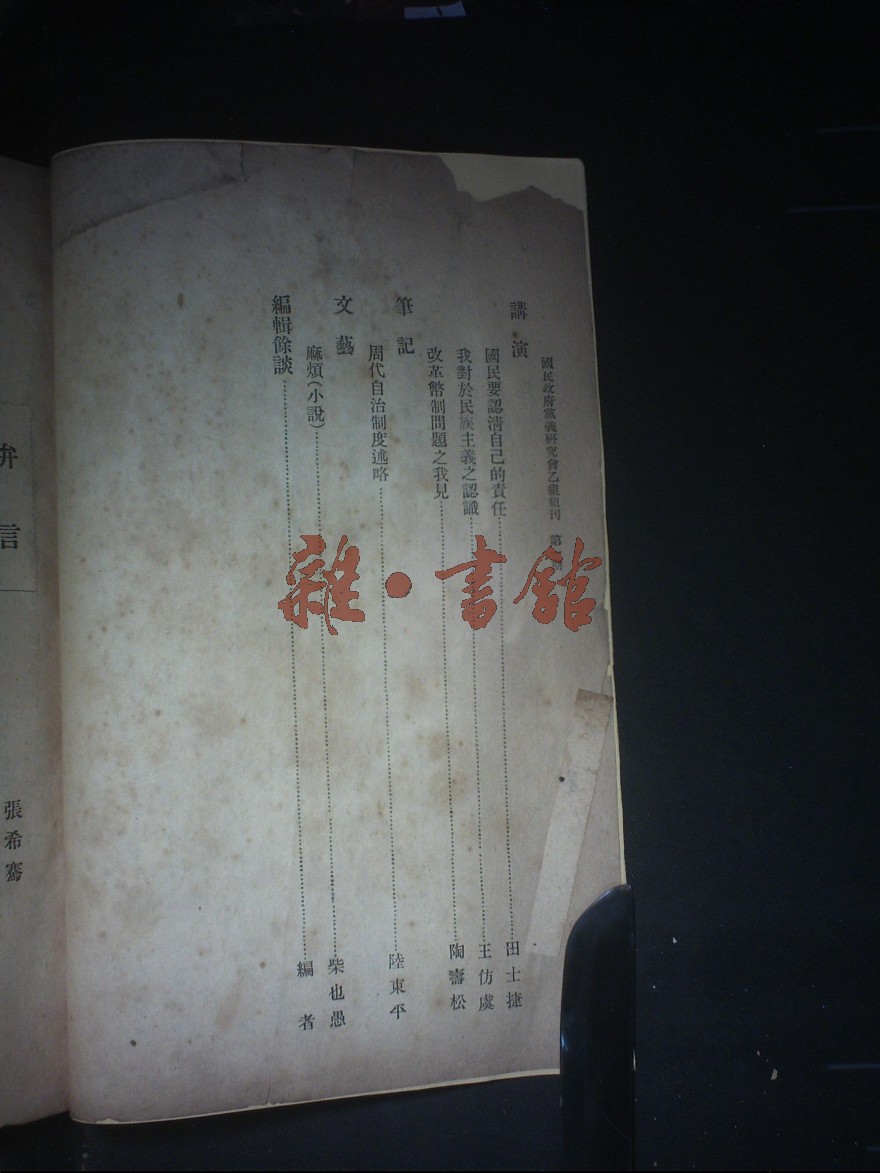 國民政府黨義研究會乙組組刊 第
講演
國民要認清自己的責任 田士捷
我對於民族主義之認識 王仿處
改革幣制問題之我見 陶審松
筆記
周代自治制度述略 陸東平
文藝
麻煩(小說) 柴也愚
編輯餘談 編者
弁言
張希騫
雜·書館